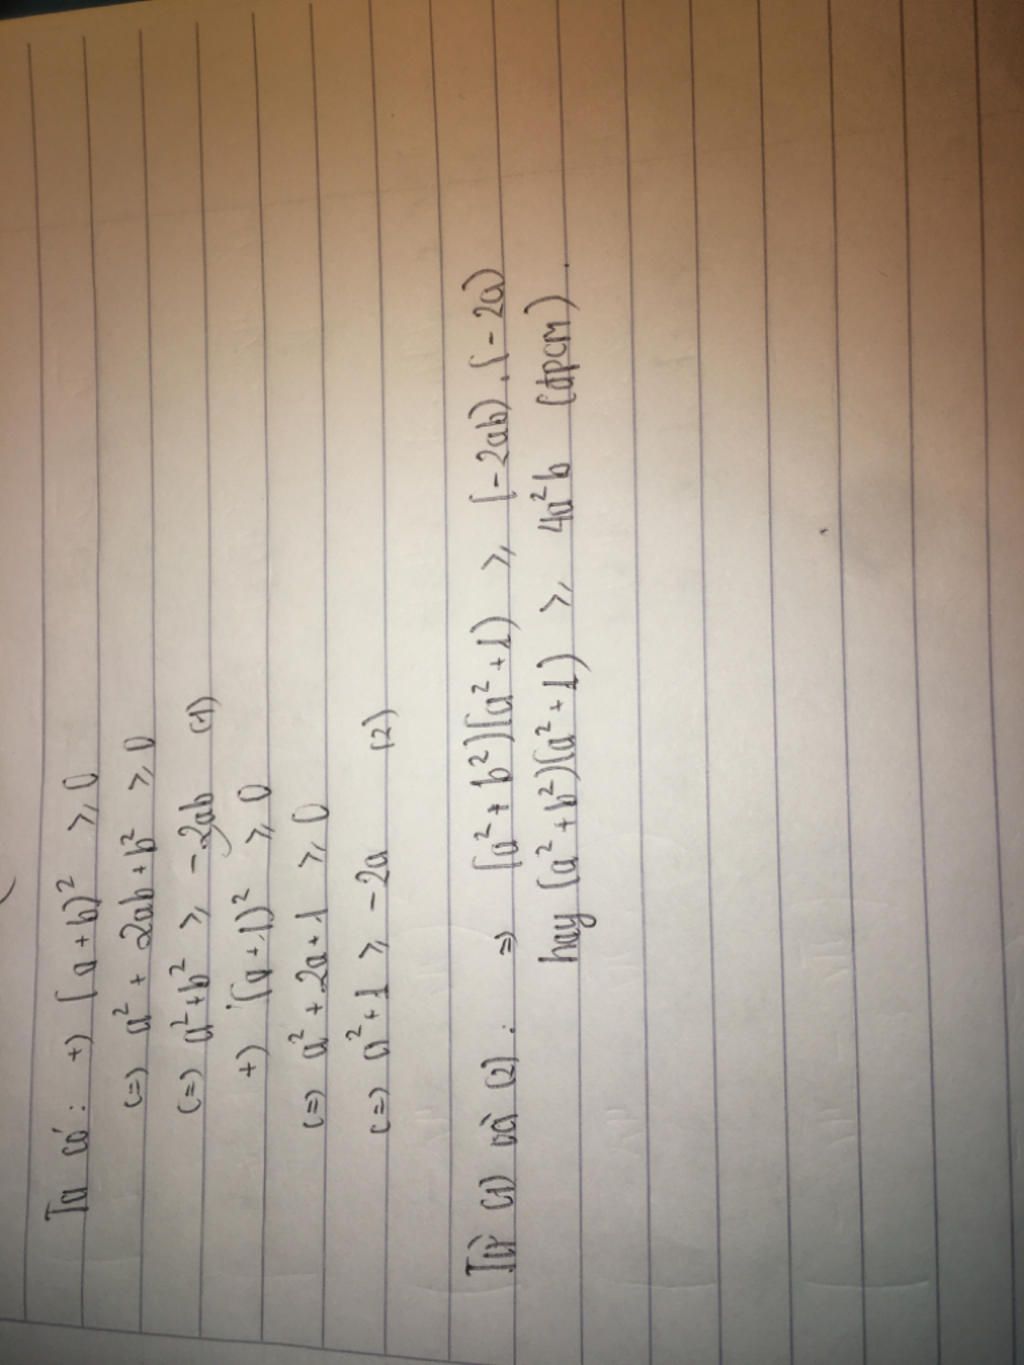 Ta có: +) (a+b)² ⩾ 0
(=) a² + 2ab + b² ⩾ 0
(=) a²+b² ⩾ -2ab (1)
+) (a+1)² ⩾ 0
(=) a² + 2a+1 ⩾ 0
(=) a²+1 ⩾ -2a (2)
Từ (1) và (2): => (a²+b²)(a²+1) ⩾ (-2ab).(-2a)
hay (a²+b²)(a²+1) ⩾ 4a²b (đpcm).